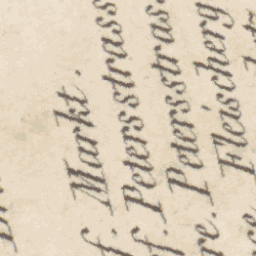 f. Markt.
f. Petersstrass
re. Petersstras
Fleischerg